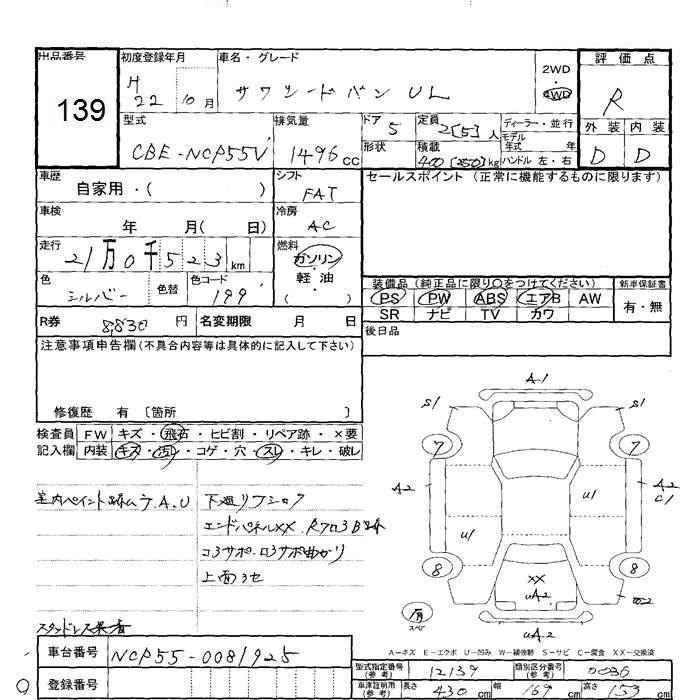 出品番号
139
初度登録年月
H 22 10月
車名・グレード
サクシードバン UL
2WD
4WD
評価点
R
外装 内装
D D
型式
CBE-NCP55V
排気量
1496 cc
ドア 5
形状
定員 2[5]人
積載 400[250]kg
ディーラー・並行
モデル年式 年
ハンドル 左・右
車歴
自家用・( )
シフト
FAT
車検
年 月( 日)
冷房
AC
走行
21万0千523km
燃料
ガソリン
軽・油
( )
色
シルバー
色替
色コード
199
セールスポイント (正常に機能するものに限ります)
装備品(純正品に限り○をつけてください)
新車保証書
PS PW ABS エアB AW
SR ナビ TV カワ
有・無
R券 8,830円
名変期限 月 日
後日品
注意事項申告欄(不具合内容等は具体的に記入して下さい)
修復歴 有 〔箇所 〕
検査員
記入欄
FW キズ・飛石・ヒビ割・リペア跡・×要
内装 キズ・汚レ・コゲ・穴・スレ・キレ・破レ
室内ペイント
下廻りフシロク
エンドパネルXX
上面コセ
スタッドレス装着
A-1
S1 S1
7 7
A2 A2
C1
U1
U1
8 8
XX
UA2
UA2
スペア
A-キズ E-エクボ U-凹み W-補修跡 S-サビ C-腐食 XX-交換済
車台番号
NCP55-0081925
登録番号
型式指定番号(参考) 12139
類別区分番号(参考) 0036
車庫証明用(参考) 長さ 430 cm 幅 169 cm 高さ 153 cm